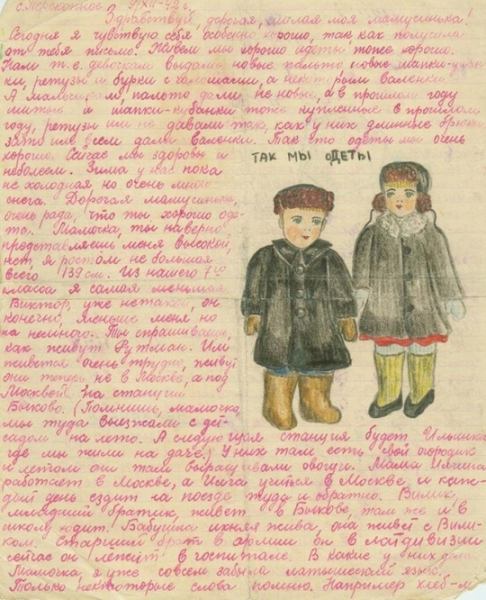 с. Перекопное 9/XII-42 г.
Здравствуй, дорогая, милая моя мамусинька!
Сегодня я чувствую себя особенно хорошо, так как получила
от тебя письмо. Живём мы хорошо одеты тоже хорошо.
Нам т.е. девочкам выдали новые пальто новые шапки-
ретузы и бурки с галошами, а некоторым валенки.
А, мальчикам, пальто дали не новые, а в прошлом году
шитые и шапки-кубанки тоже купленные в прошлом
году, ретузы им не давали так, как у них длинные брюки
зато им всем дали валенки. Так что одеты мы очень
хорошо. Сейчас мы здоровы и
не болеем. Зима у нас пока
не холодная но очень много
снега. Дорогая мамусинька,
очень рада, что ты хорошо оде-
та. Мамочка, ты наверно,
представляешь меня высокой,
нет, я ростом не большая
всего 139 см. Из нашего 7го
класса я самая меньшая.
Виктор, уже не такой, он
конечно, меньше меня но
на немного. Ты спрашиваешь,
как живут Рутман. Им
живётся очень трудно, живут
они теперь не в Москве, а под
Москвой на станции
Быково. (Помнишь, мамочка
мы туда выезжали с дет-
садом на лето. А следующая станция будет Ильинка
где мы жили на даче. У них там есть свой огородик
и летом они там выращивали овощи. Мама
работает в Москве, а учится в Москве и каж-
дый день ездит на поезде туда и обратно. Вилик,
младший братик, живёт в Быкове, там же и в
школу ходит. Бабушка ихняя жива, она живёт с Вили-
ком. Старший брат в армии он в
сейчас он лежит в госпитале. В какие у них дела.
Мамочка, я уже совсем забыла латышский язык.
Только некоторые слова помню. Например хлеб-м
ТАК МЫ ОДЕТЫ